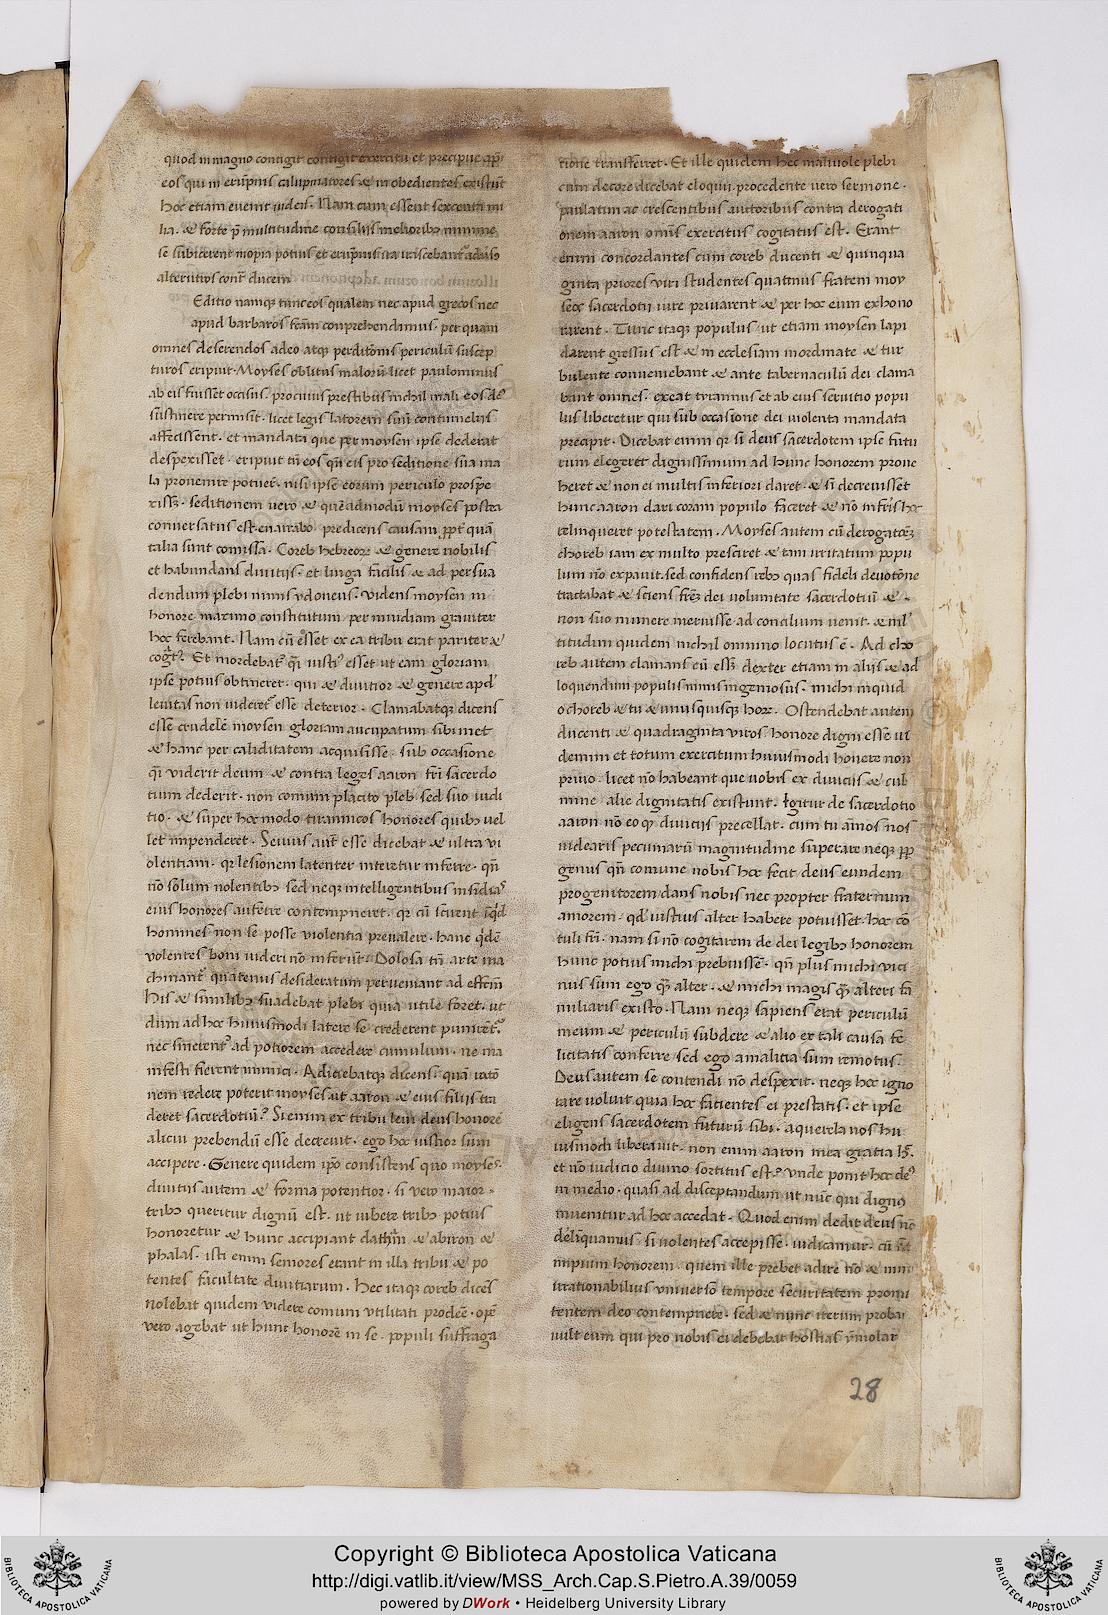 quod in magno contigit contigit exercitu et precipue ap̄
eos qui in erūpnis calūpniatores & inobedientes existūt
Hoc etiam euenit iudeis. Nam cum essent sexcenta mi
lia. & forte p̄ multitudine consiliis melioribꝫ minime
se subicerent inopia potius et erūpnis ita
alterutros cont̄ ducem
Editio namqꝫ tunc eos qualem nec apud grecos nec
apud barbaros fc̄am conprehendimus. per quam
omnes deferendos adeo atqꝫ perditōnis periculū suscep
turos eripuit. Moyses oblitus malorū licet paulominus
ab eis fuisset occisus. procuius precibus nichil mali eos de
sustinere permisit. licet legis latorem suū contumeliis
affecissent. et mandata que per moysen ipse dederat
despexisset. eripuit tn̄ eos qn̄ eis pro seditione sua ma
la prouenire potuer̄t. nisi ipse eorum periculo prospe
xissꝫ. seditionem uero & quēadmodū moyses postea
conuersatus est. enarrabo. predicens causam ꝓpt̄ quā
talia sunt comissa. Coreb hebreoꝝ & genere nobilis
et habundans diuitijs. et lingua facilis & ad persua
dendum plebi nimis ydoneus. videns moysen in
honore maximo constitutum per inuidiam grauiter
hoc ferebant. Nam cū esset ex ea tribu erat pariter &
cogt̄ꝰ. Et mordebatꝰ qꝫ iustiꝰ esset ut eam gloriam
ipse potius obtineret. qui & diuitior & genere apd̄
leuitas non uideretꝰ esse deterior. Clamabatqꝫ dicens
esse crudele moysen gloriam aucupatum sibimet
& hanc per caliditatem acquisisse. sub occasione
qꝫ viderit deum. & contra leges aaron fr̄i sacerdo
tium dederit. non comuni placito pleb̄ sed suo iudi
tio. & super hoc modo tirannicos honores quibꝫ uel
let impenderet. Seuius aut̄ esse dicebat & ultra vi
olentiam. qꝛ lesionem latenter niteretur inferre. qn̄
nō solum nolentibꝫ sed neqꝫ intelligentibus insidiaꝰ
eius honores auferre contempneret. qꝛ cū scirent
homines non se posse violentia preualere. hanc q̇dē
volentes boni uideri nō inferūt. Dolosa tn̄ arte ma
chinant̄ quatenus desideratum perueniant ad effcm̄
His & similibꝫ suadebat plebi quia utile foret. ut
dum ad hoc huiusmodi latere se crederent punirētꝰ.
nec sinerentꝰ ad potiorem accedere cumulum. ne ma
nifesti fierent inimici. Adiciebatqꝫ dicens. quā ratō
nem redere poterit moyses ut aaron & eius filijs tra
deret sacerdotiū. Si enim ex tribu leui deus honore
alicui prebendū esse decreuit. ego hoc iustior sum
accipere. Genere quidem ip̄o consistens quo moyses.
diuitiis autem & forma potentior. si vero maior
tribꝫ queritur dignū est. ut iubere tribꝫ potius
honoretur & hunc accipiant dathan & abiron &
phalas. isti enim seniores erant in illa tribu & po
tentes facultate diuitiarum. Hec itaqꝫ coreb dicēs
nolebat quidem videre comuni utilitati prodeē. opē
vero agebat ut hunc honorē in se. populi suffraga
tione transferret. Et ille quidem hec maliuole plebi
cum decore dicebat eloquii. procedente uero sermone.
paulatim ac crescentibus auctoribus contra derogati
onem aaron omīs exercitus cogitatus est. Erant
enim concordantes cum coreb ducenti & quinqua
ginta priores viri studentes quatinus fratem moy
seos sacerdotii iure priuarent & per hoc eum exhono
rarent. Tunc itaqꝫ populus ut etiam moysen lapi
darent gressus est & in ecclesiam inordinate & tur
bulente conueniebant & ante tabernaculū dei clama
bant omnes. exeat tyrannus et ab eius seruitio popu
lus liberetur qui sub occasione dei uiolenta mandata
precipit. Dicebat enim qꝛ si deus sacerdotem ipse futu
rum elegeret dignissimum ad hunc honorem proue
heret & non ei multis inferiori daret. & si decreuisset
hunc aaron dari coram populo faceret & nō in fr̄is hoc
relinqueret potestatem. Moyses autem cū derogatōeꝫ
choreb iam ex multo presciret & tam irritatum popu
lum nō expauit. sed confidens rebꝫ quas fideli deuotōne
tractabat & sciens fr̄eꝫ dei voluntate sacerdotiū & .
non suo munere meruisse ad concilium uenit. & ml̄
titudini quidem nichil omnino locutus ē. Ad cho
reb autem clamans cū essꝫ dexter etiam in alijs & ad
loquendum populis nimis ingeniosus. michi inquid
o choreb & tu & unusquisqꝫ hoꝝ. Ostendebat autem
ducenti & quadraginta viros honore digni esse ui
demini et totum exercitum huiusmodi honere non
priuo. licet nō habeant que vobis ex diuiciis & cul
mine. alie dignitatis existunt. Igitur de sacerdotio
aaron nō eo qꝫ diuicijs precellat. cum tu ambos nos
uidearis pecuniarū magnitudine superare neqꝫ ꝓp̄
genus qn̄ comune nobis hoc fecit deus eundem
progenitorem dans nobis nec propter fraternum
amorem. qd̄ iustius alter habere potuisset. hoc cō
tuli fr̄i. nam si nō cogitarem de dei legibꝫ honorem
hunc potius michi prebuissē. qn̄ plus michi vici
nus sum ego qꝫ alter. & michi magis qꝫ alteri fa
miliaris existo. Nam neqꝫ sapiens erat periculū
meum & periculū subdere & alio ex tali causa fe
licitatis conferre sed ego a malitia sum remotus.
Deus autem se contendi nō despexit. neqꝫ hoc igno
rare voluit quia hoc facientes ei prestatis. et ipse
eligens sacerdotem futurū sibi. a querela nos hu
iusmodi liberauit. non enim aaron mea gratia hꝫ.
et nō iudicio diuino sortitus est. Unde ponit hoc deꝰ
in medio. quasi ad disceptandum ut nūc qui dignus
inuenitur ad hoc accedat. Quod enim dedit deus nō
deliquamus si uolentes accepisse. iudicamur. cū sit
impium honorem. quem ille prebet adire nō & nimi
irrationabilius vniuerso tempore securitatem promi
tentem deo contempnere. sed & nunc iterum probai
uult eum qui pro nobis ei debebat hostias ymolar
28
Copyright © Biblioteca Apostolica Vaticana
http://digi.vatlib.it/view/MSS_Arch.Cap.S.Pietro.A.39/0059
powered by DWork • Heidelberg University Library
BIBLIOTECA APOSTOLICA VATICANA
BIBLIOTECA APOSTOLICA VATICANA